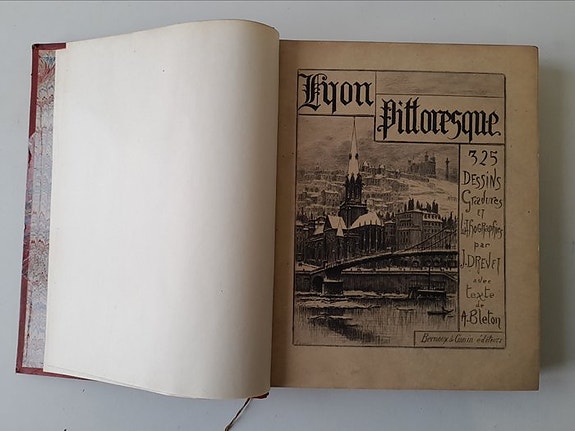 Lyon
Pittoresque.
325
DESSINS
Gravures
ET
LITHOGRAPHIES
par
J. DREVET
avec
texte
de
A. Bleton
Bernoux & Cumin éditeurs